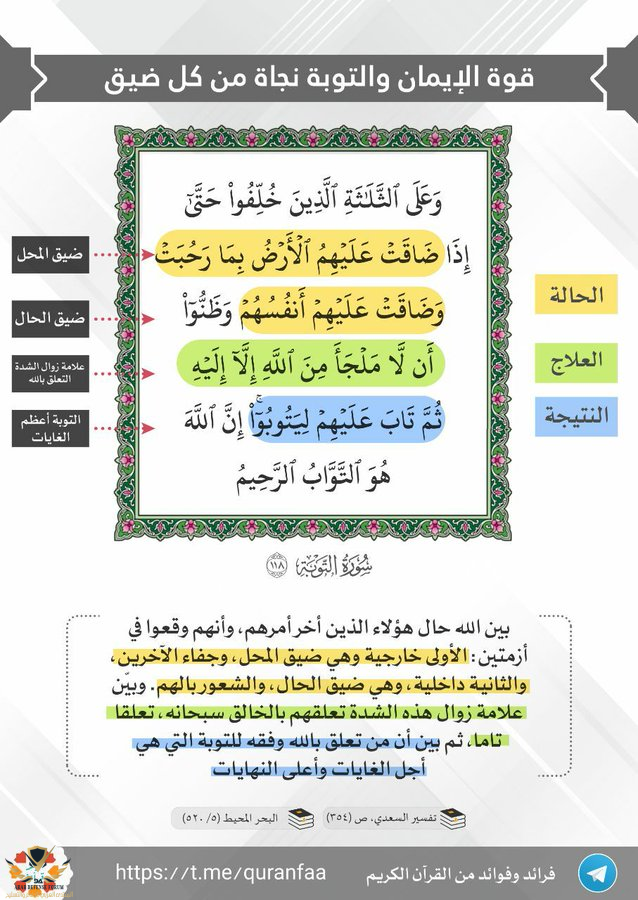 قوة الإيمان والتوبة نجاة من كل ضيق
وَعَلَى ٱلثَّلَٰثَةِ ٱلَّذِينَ خُلِّفُوا۟ حَتَّىٰٓ
إِذَا ضَاقَتْ عَلَيْهِمُ ٱلْأَرْضُ بِمَا رَحُبَتْ
وَضَاقَتْ عَلَيْهِمْ أَنفُسُهُمْ وَظَنُّوٓا۟
أَن لَّا مَلْجَأَ مِنَ ٱللَّهِ إِلَّآ إِلَيْهِ
ثُمَّ تَابَ عَلَيْهِمْ لِيَتُوبُوٓا۟ ۚ إِنَّ ٱللَّهَ
هُوَ ٱلتَّوَّابُ ٱلرَّحِيمُ
الحالة
العلاج
النتيجة
ضيق المحل
ضيق الحال
علامة زوال الشدة
التعلق بالله
التوبة أعظم
الغايات
سُورَةُ التَّوْبَةِ ١١٨
بين الله حال هؤلاء الذين أخر أمرهم، وأنهم وقعوا في
أزمتين: الأولى خارجية وهي ضيق المحل، وجفاء الآخرين،
والثانية داخلية، وهي ضيق الحال، والشعور بالهم. وبيّن
علامة زوال هذه الشدة تعلقهم بالخالق سبحانه، تعلقا
تاما، ثم بين أن من تعلق بالله وفقه للتوبة التي هي
أجل الغايات وأعلى النهايات
تفسير السعدي، ص (٣٥٤)
البحر المحيط (٥/ ٥٢٠)
فرائد وفوائد من القرآن الكريم
https://t.me/quranfaa
ARAB DEFENSE FORUM